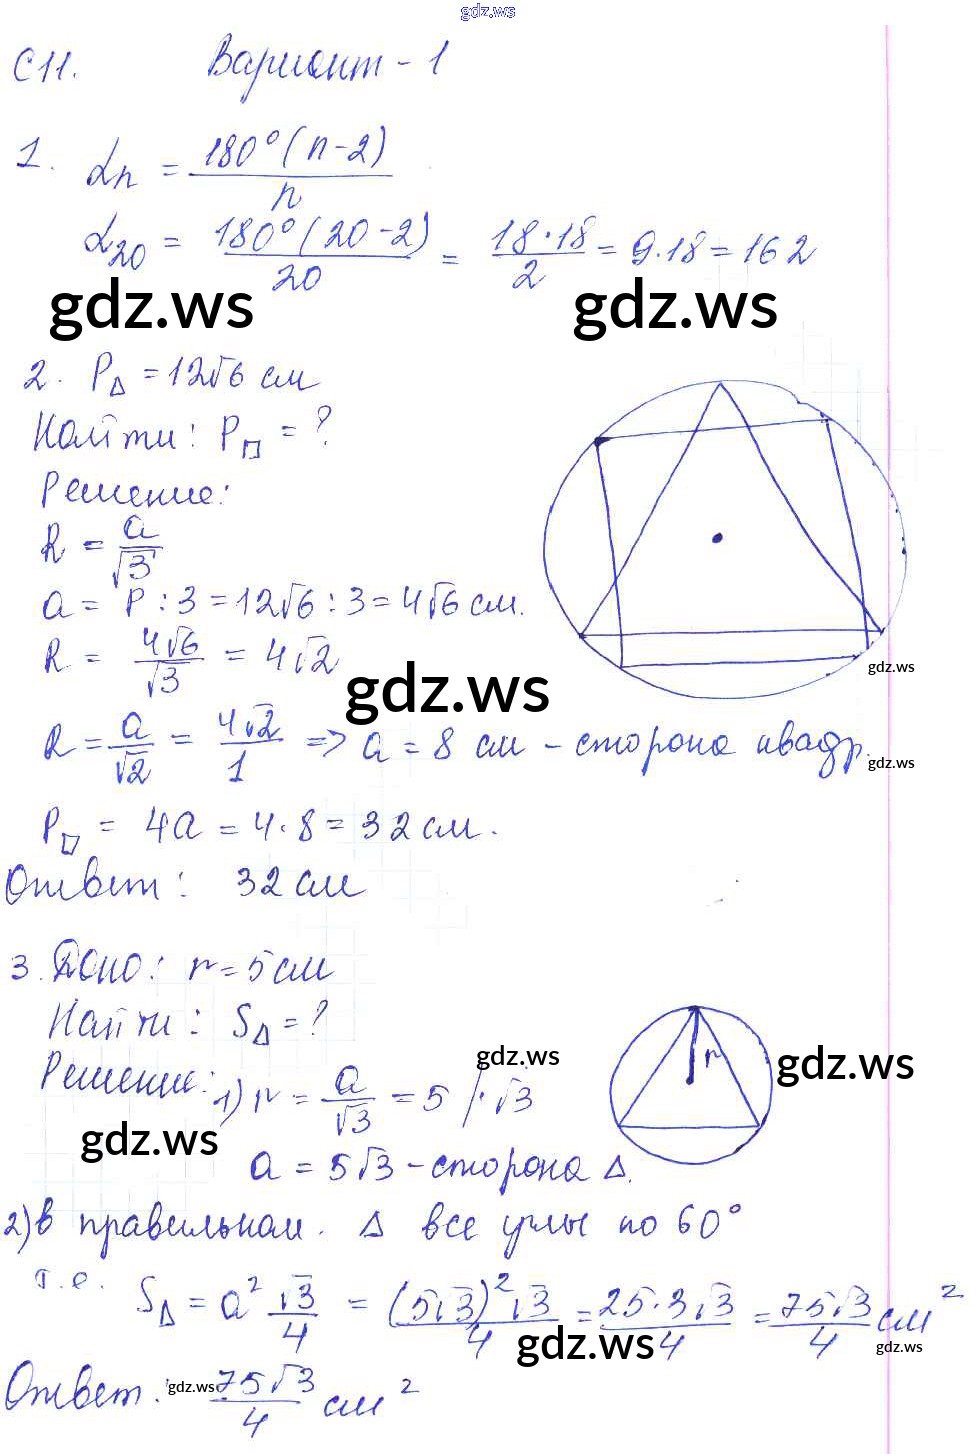 gdz.ws
С11. Вариант - 1
1. αn = 180°(n-2)/n
α20 = 180°(20-2)/20 = 18·18/2 = 9·18 = 162
gdz.ws gdz.ws
2. P△ = 12√6 см
Найти: P□ = ?
Решение:
R = a/√3
a = P : 3 = 12√6 : 3 = 4√6 см.
R = 4√6/√3 = 4√2
gdz.ws
gdz.ws
R = a/√2 = 4√2/1 => a = 8 см - сторона квадр.
gdz.ws
P□ = 4a = 4·8 = 32 см.
Ответ: 32 см
3. Дано: r = 5 см
Найти: S△ = ?
gdz.ws gdz.ws
Решение: 1) r = a/√3 = 5 /·√3
r
gdz.ws
a = 5√3 - сторона △.
2) в правильном. △ все углы по 60°
т.е. S△ = a² √3/4 = (5√3)²√3/4 = 25·3√3/4 = 75√3/4 см²
gdz.ws gdz.ws
Ответ: 75√3/4 см²
gdz.ws